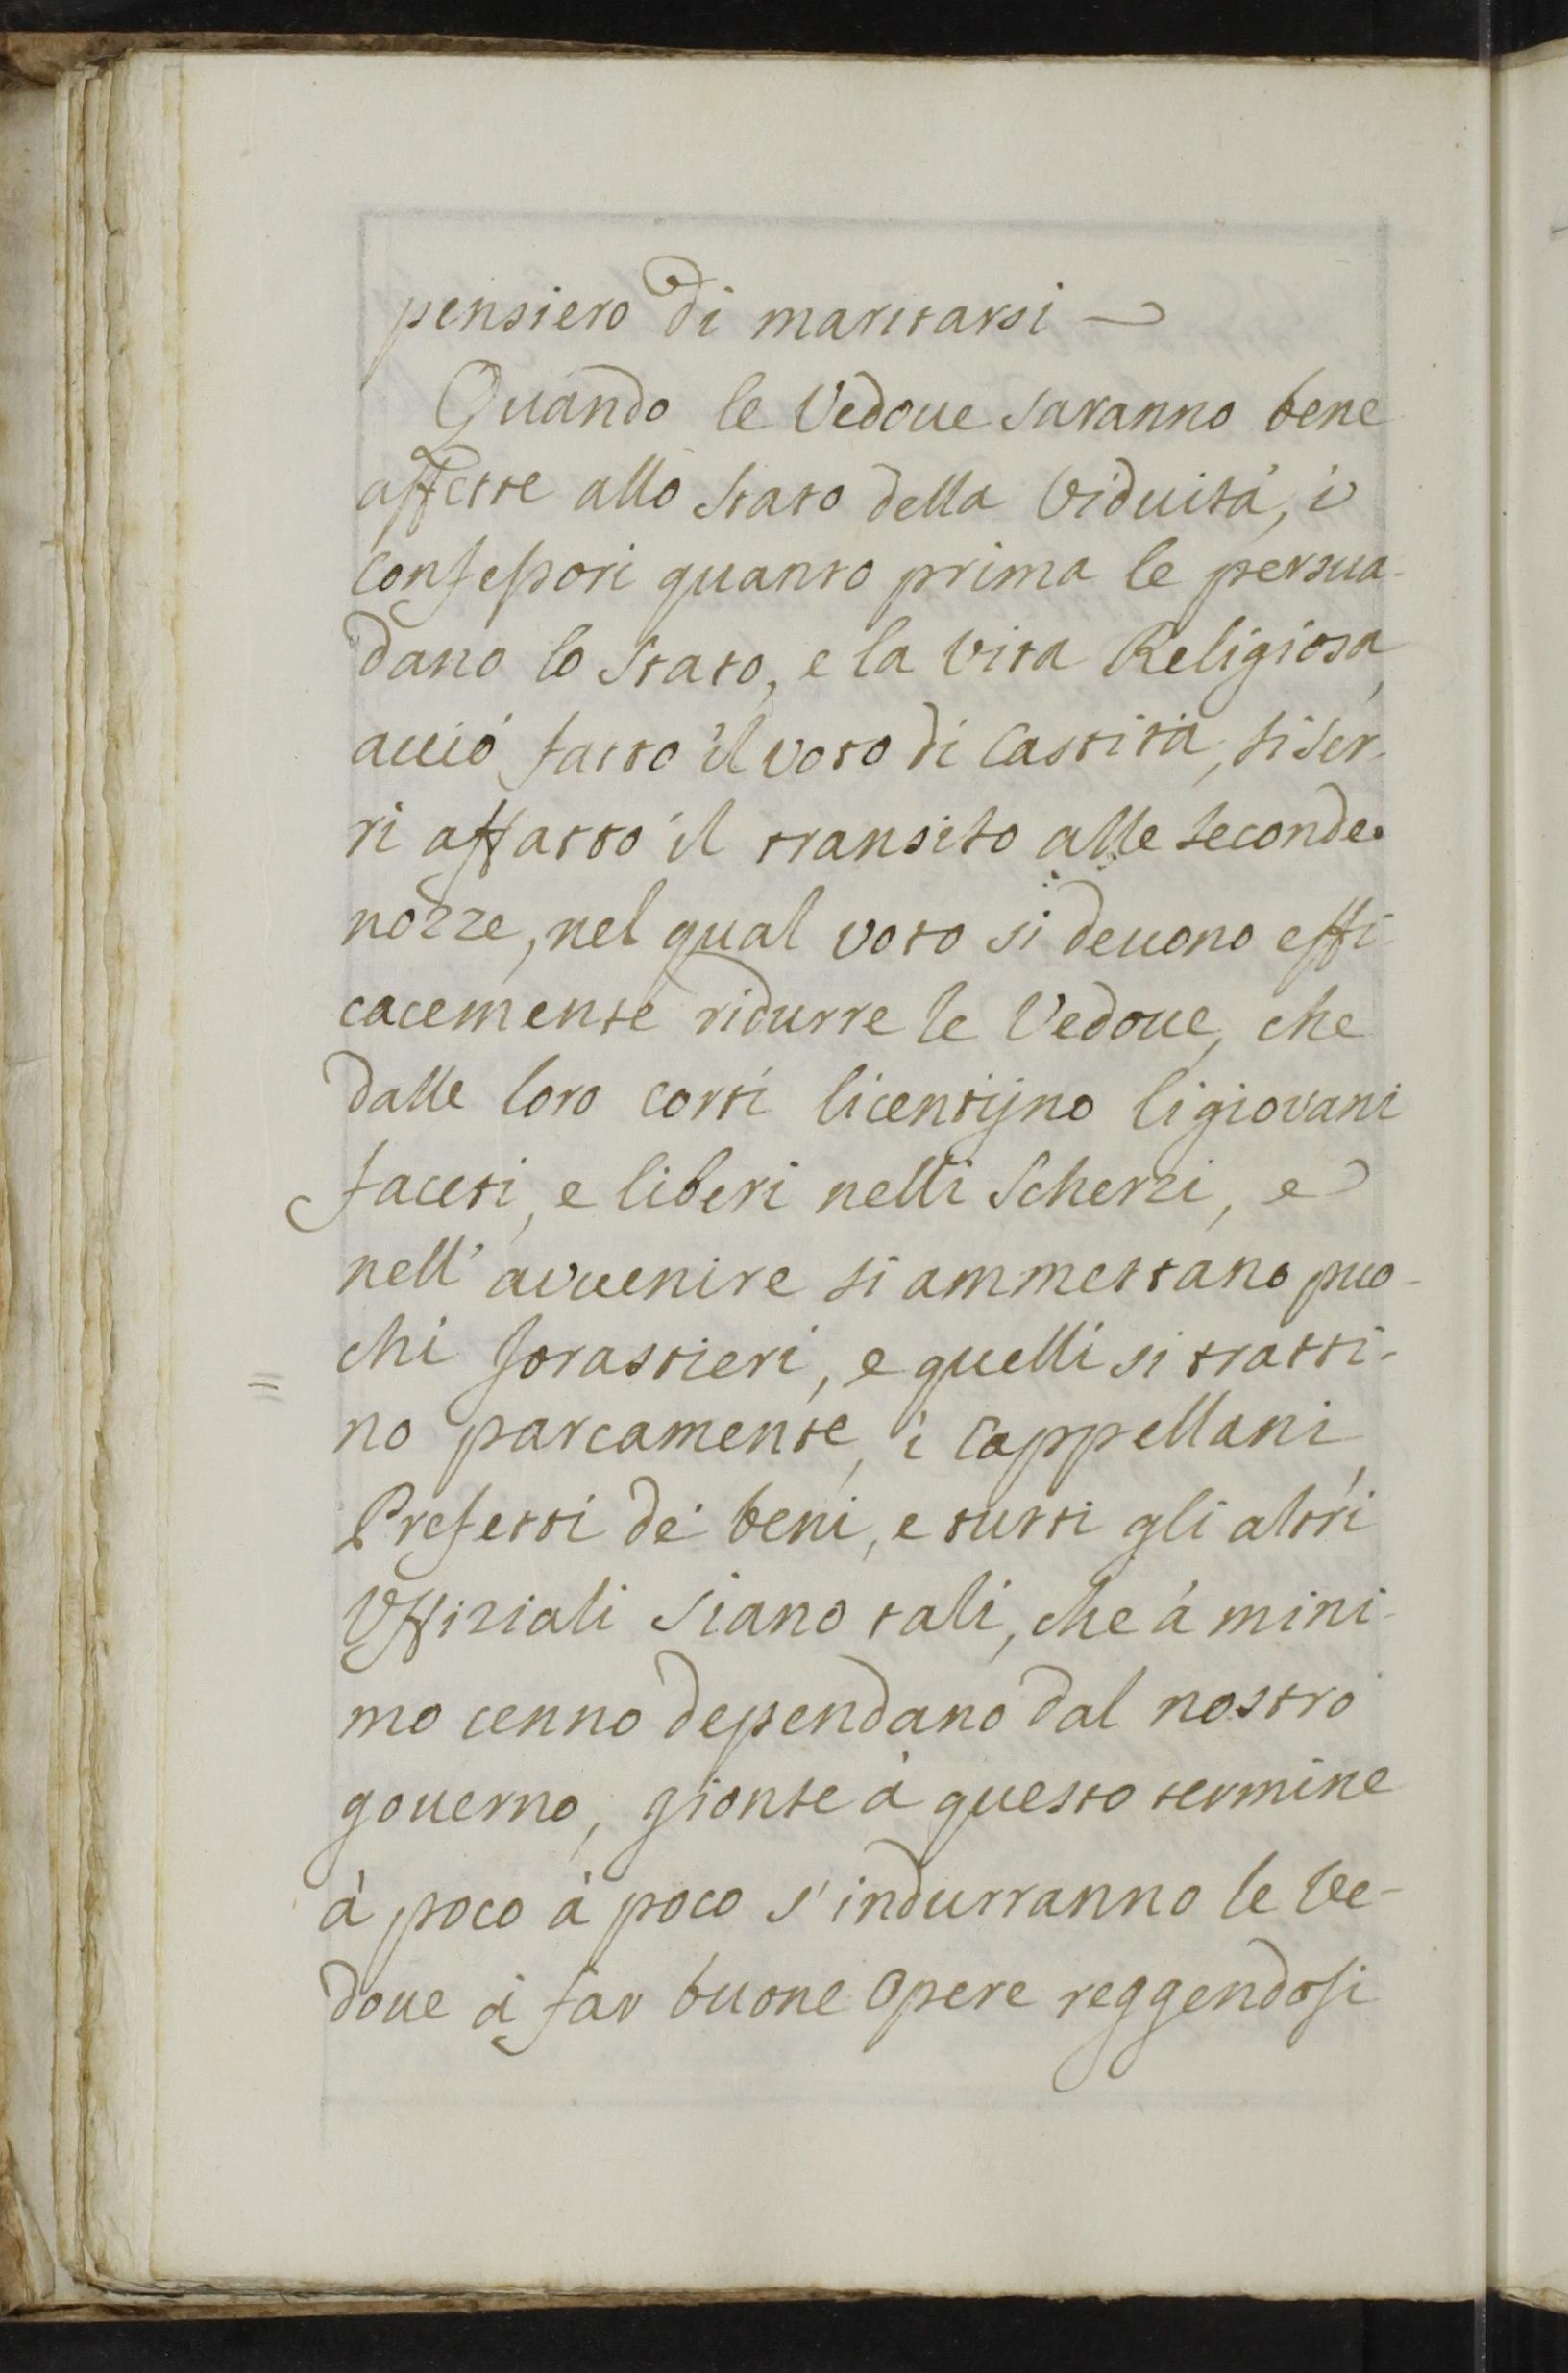 pensiero di maritarsi
Quando le Vedoue saranno bene
affette allo Stato della Viduità, i
Confessori quanto prima le persua-
dano lo Stato, e la vita Religiosa,
acciò fatto il voto di Castità, si ser-
ri affatto il transito alle seconde
nozze, nel qual voto si deuono effi-
cacemente ridurre le Vedoue, che
dalle loro corti licentijno li giovani
faceti, e liberi nelli Scherzi, e
nell' avvenire si ammettano puo-
chi forastieri, e quelli si tratti-
no parcamente, i Cappellani,
Prefetti de' beni, e tutti gli altri
Vffiziali siano tali, che à mini-
mo cenno dependano dal nostro
gouerno, gionte à questo termine
à poco à poco s'indurranno le Ve-
doue à far buone Opere reggendosi